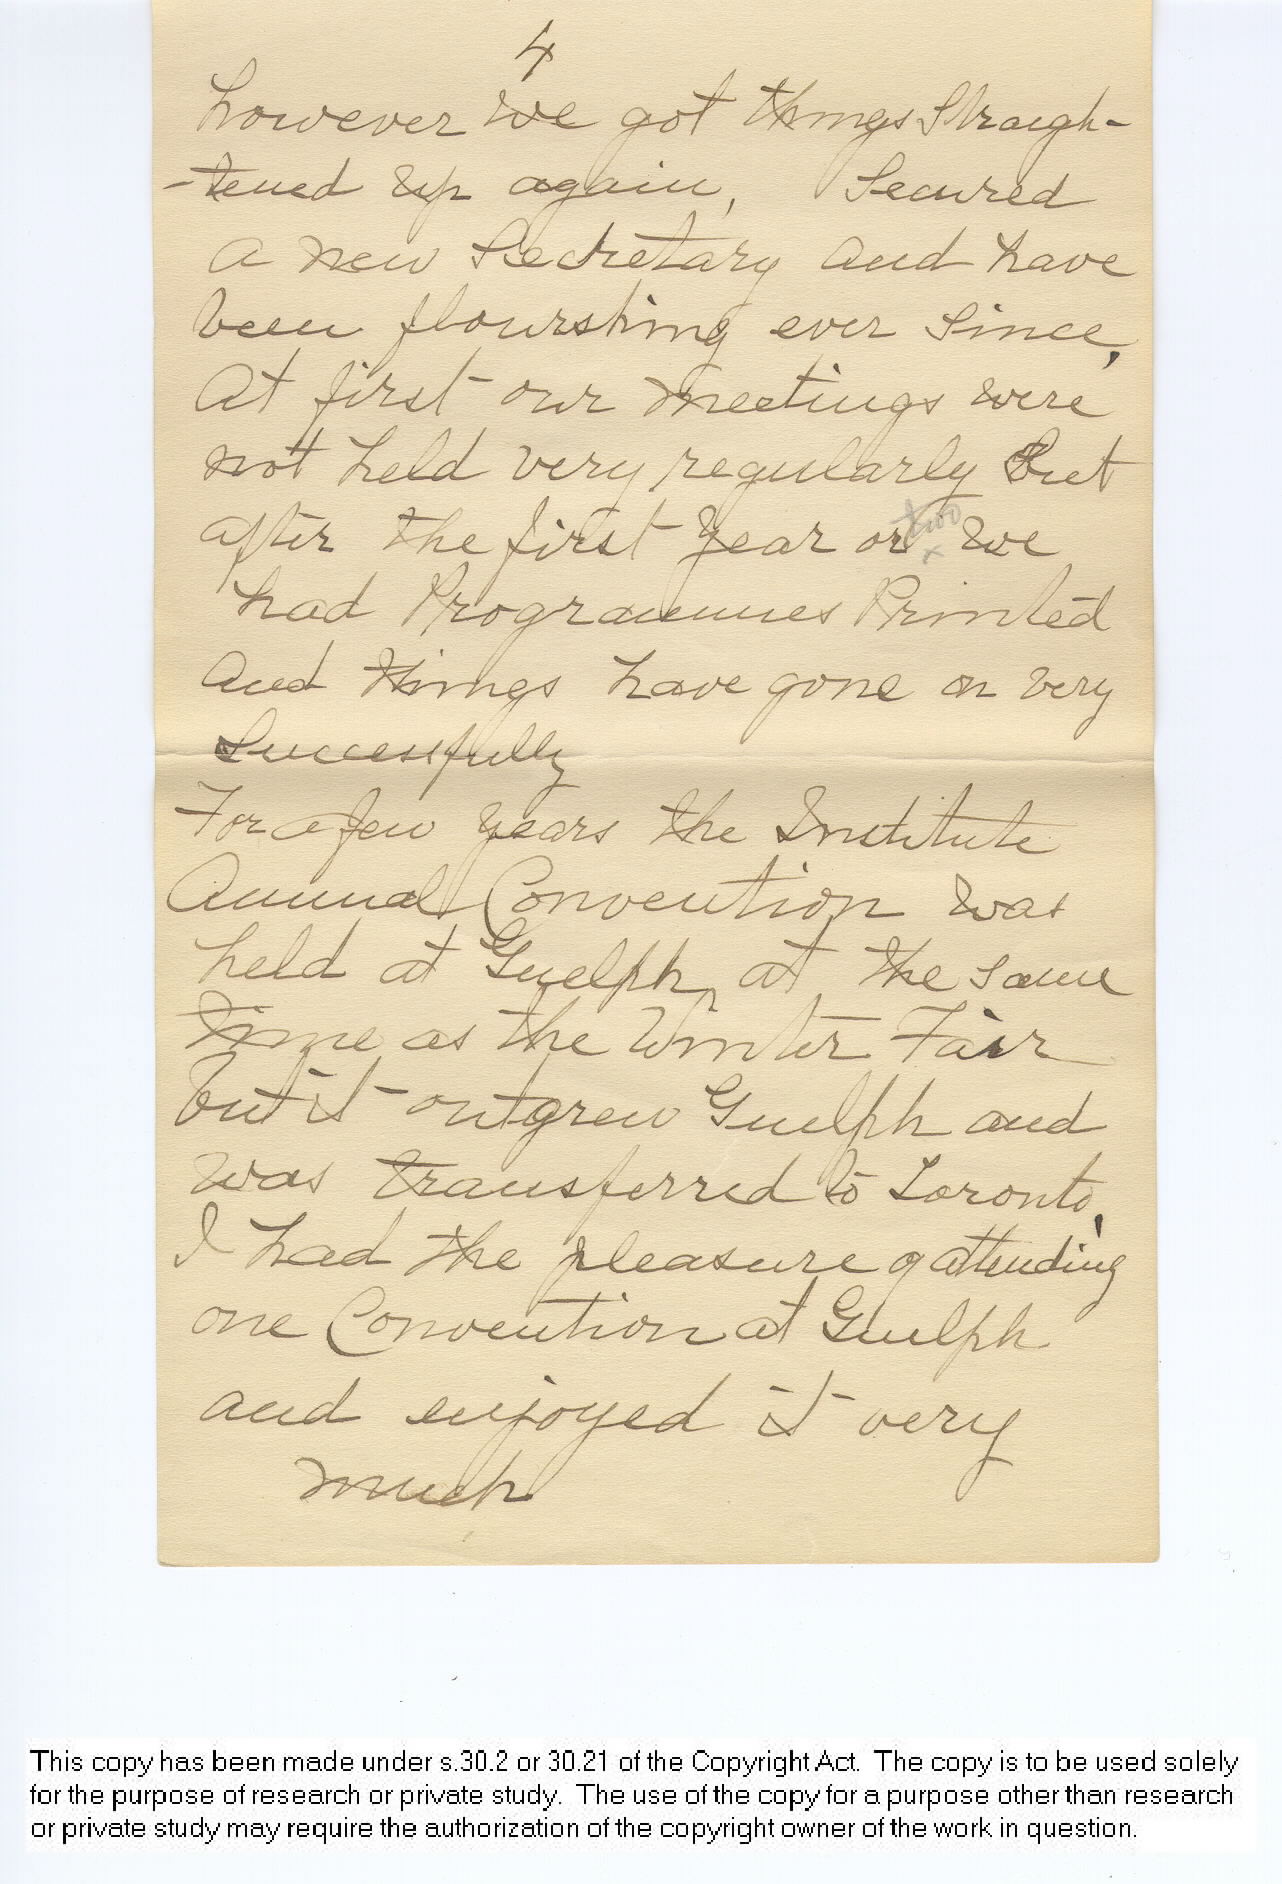 4
however we got things Straigh-
-tened up again, Secured
a new Secretary and have
been flourshing ever since,
At first our meetings were
not held very regularly But
after the first year or two we
x
had Programmes Printed
and things have gone on very
Successfully
For a few years the Institute
Annual Convention was
held at Guelph, at the same
time as the Winter Fair
but it outgrew Guelph and
was transferred to Toronto,
I had the pleasure of attending
one Convention at Guelph
and enjoyed it very
much
This copy has been made under s.30.2 or 30.21 of the Copyright Act. The copy is to be used solely
for the purpose of research or private study. The use of the copy for a purpose other than research
or private study may require the authorization of the copyright owner of the work in question.